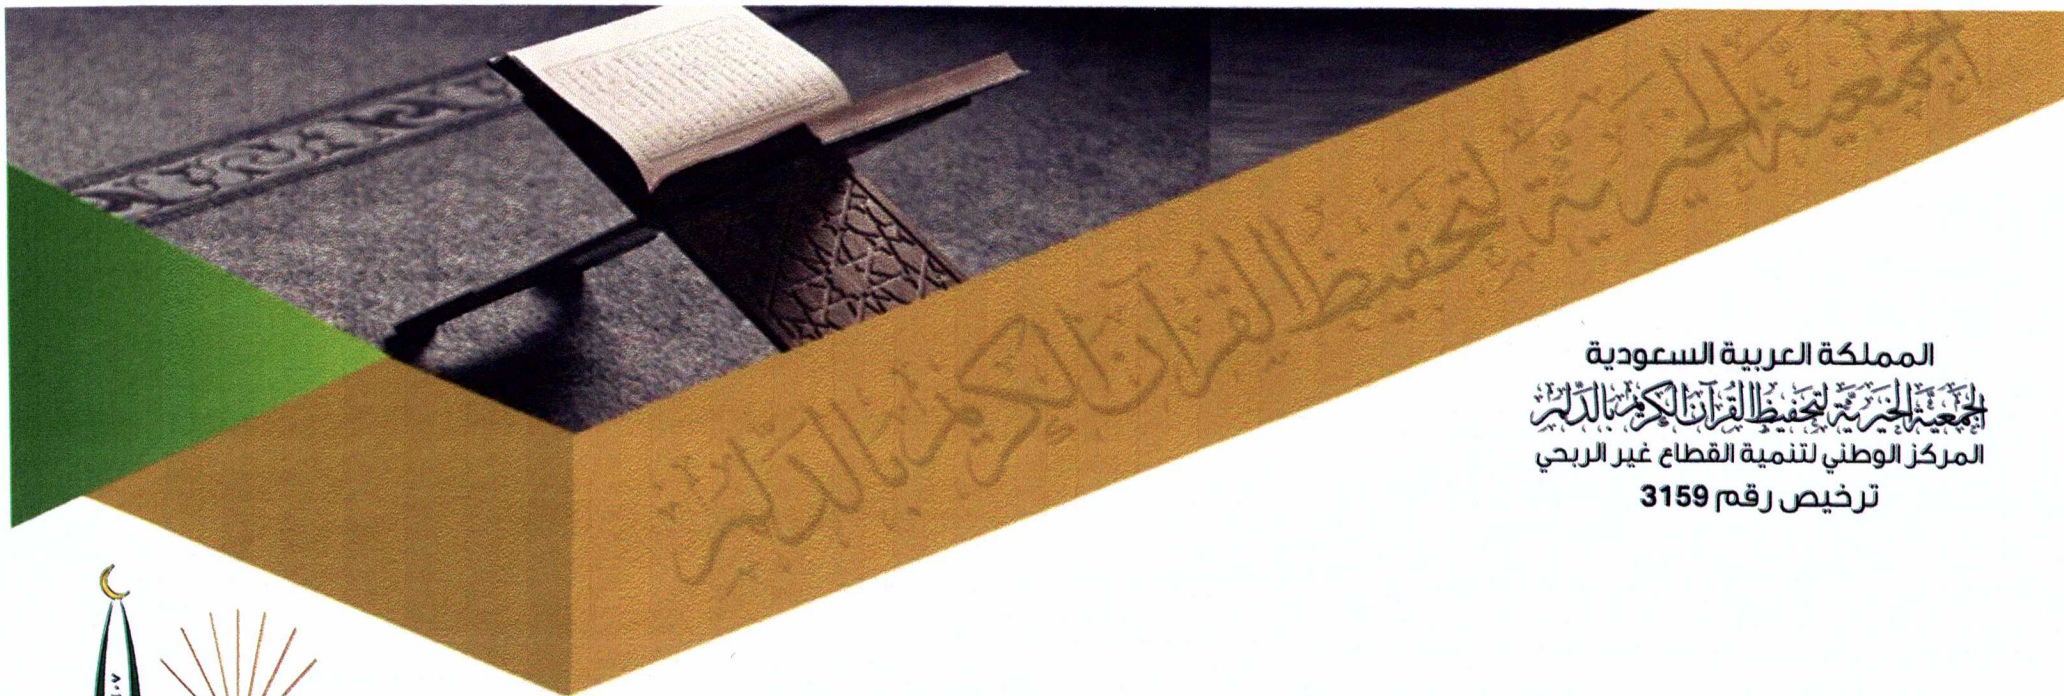 الجمعية الخيرية لتحفيظ القرآن الكريم بالدلم
المملكة العربية السعودية
الجمعية الخيرية لتحفيظ القرآن الكريم بالدلم
المركز الوطني لتنمية القطاع غير الربحي
ترخيص رقم 3159